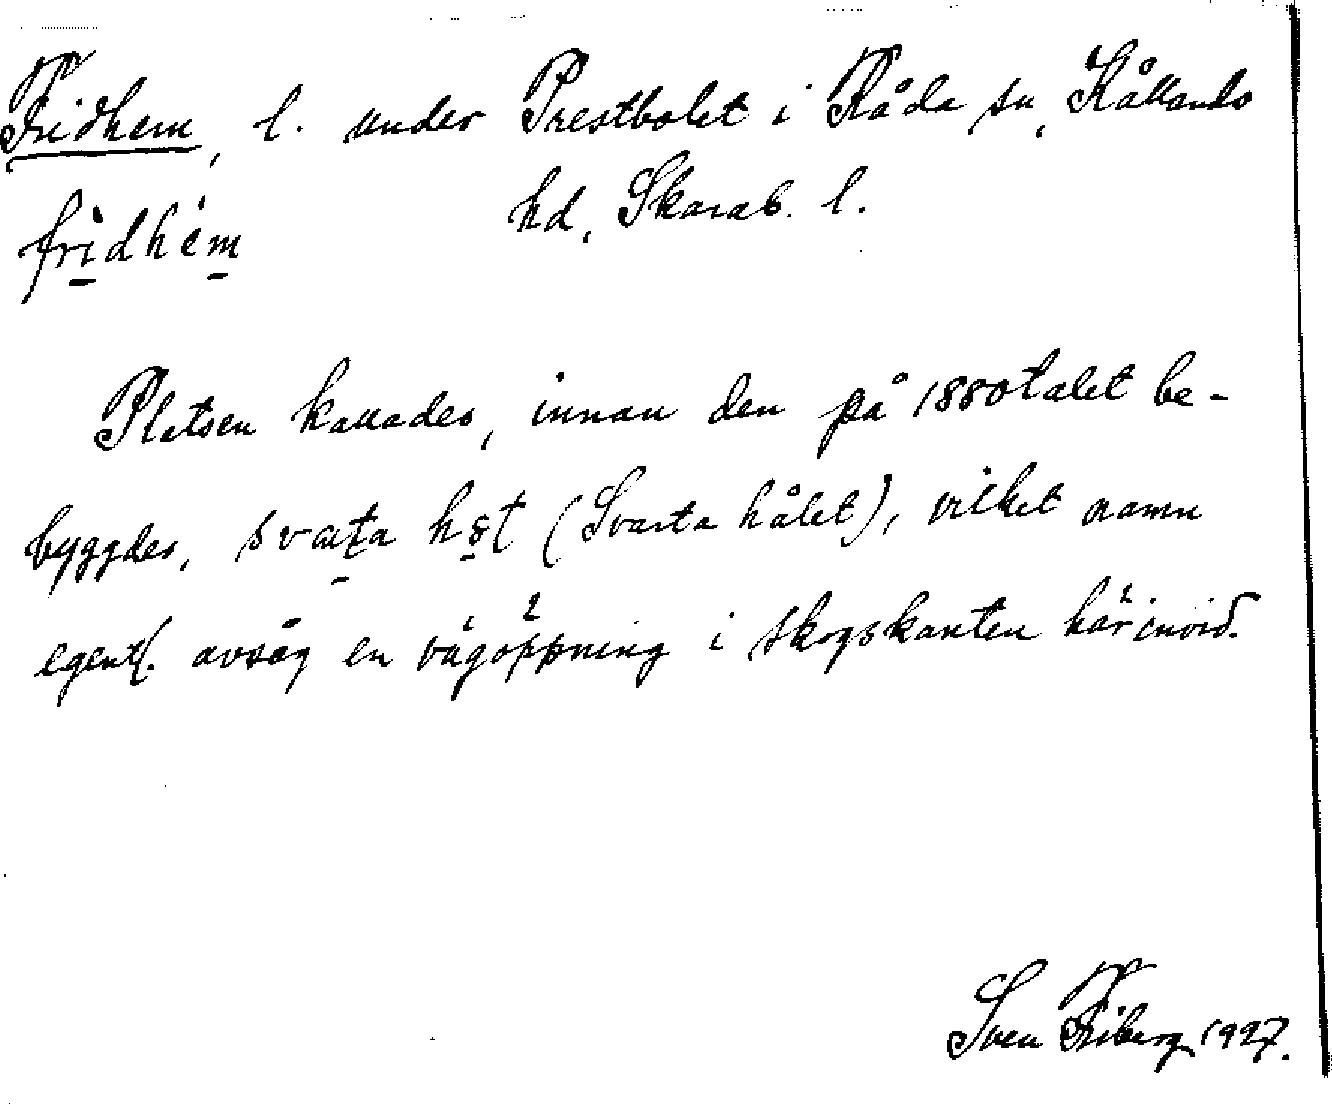 Fridhem, l. under Prestbolet i Råda sn, Kållands
hd, Skarab. l.
fridhém
Platsen kallades, innan den på 1880talet be-
byggdes, (Svarta hålet), vilket namn
egentl. avsåg en vägöppning i skogskanten härinvid.
Sven Friberg 1927.